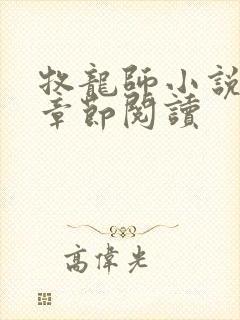 牧龍師小說
章節閱讀
高偉光